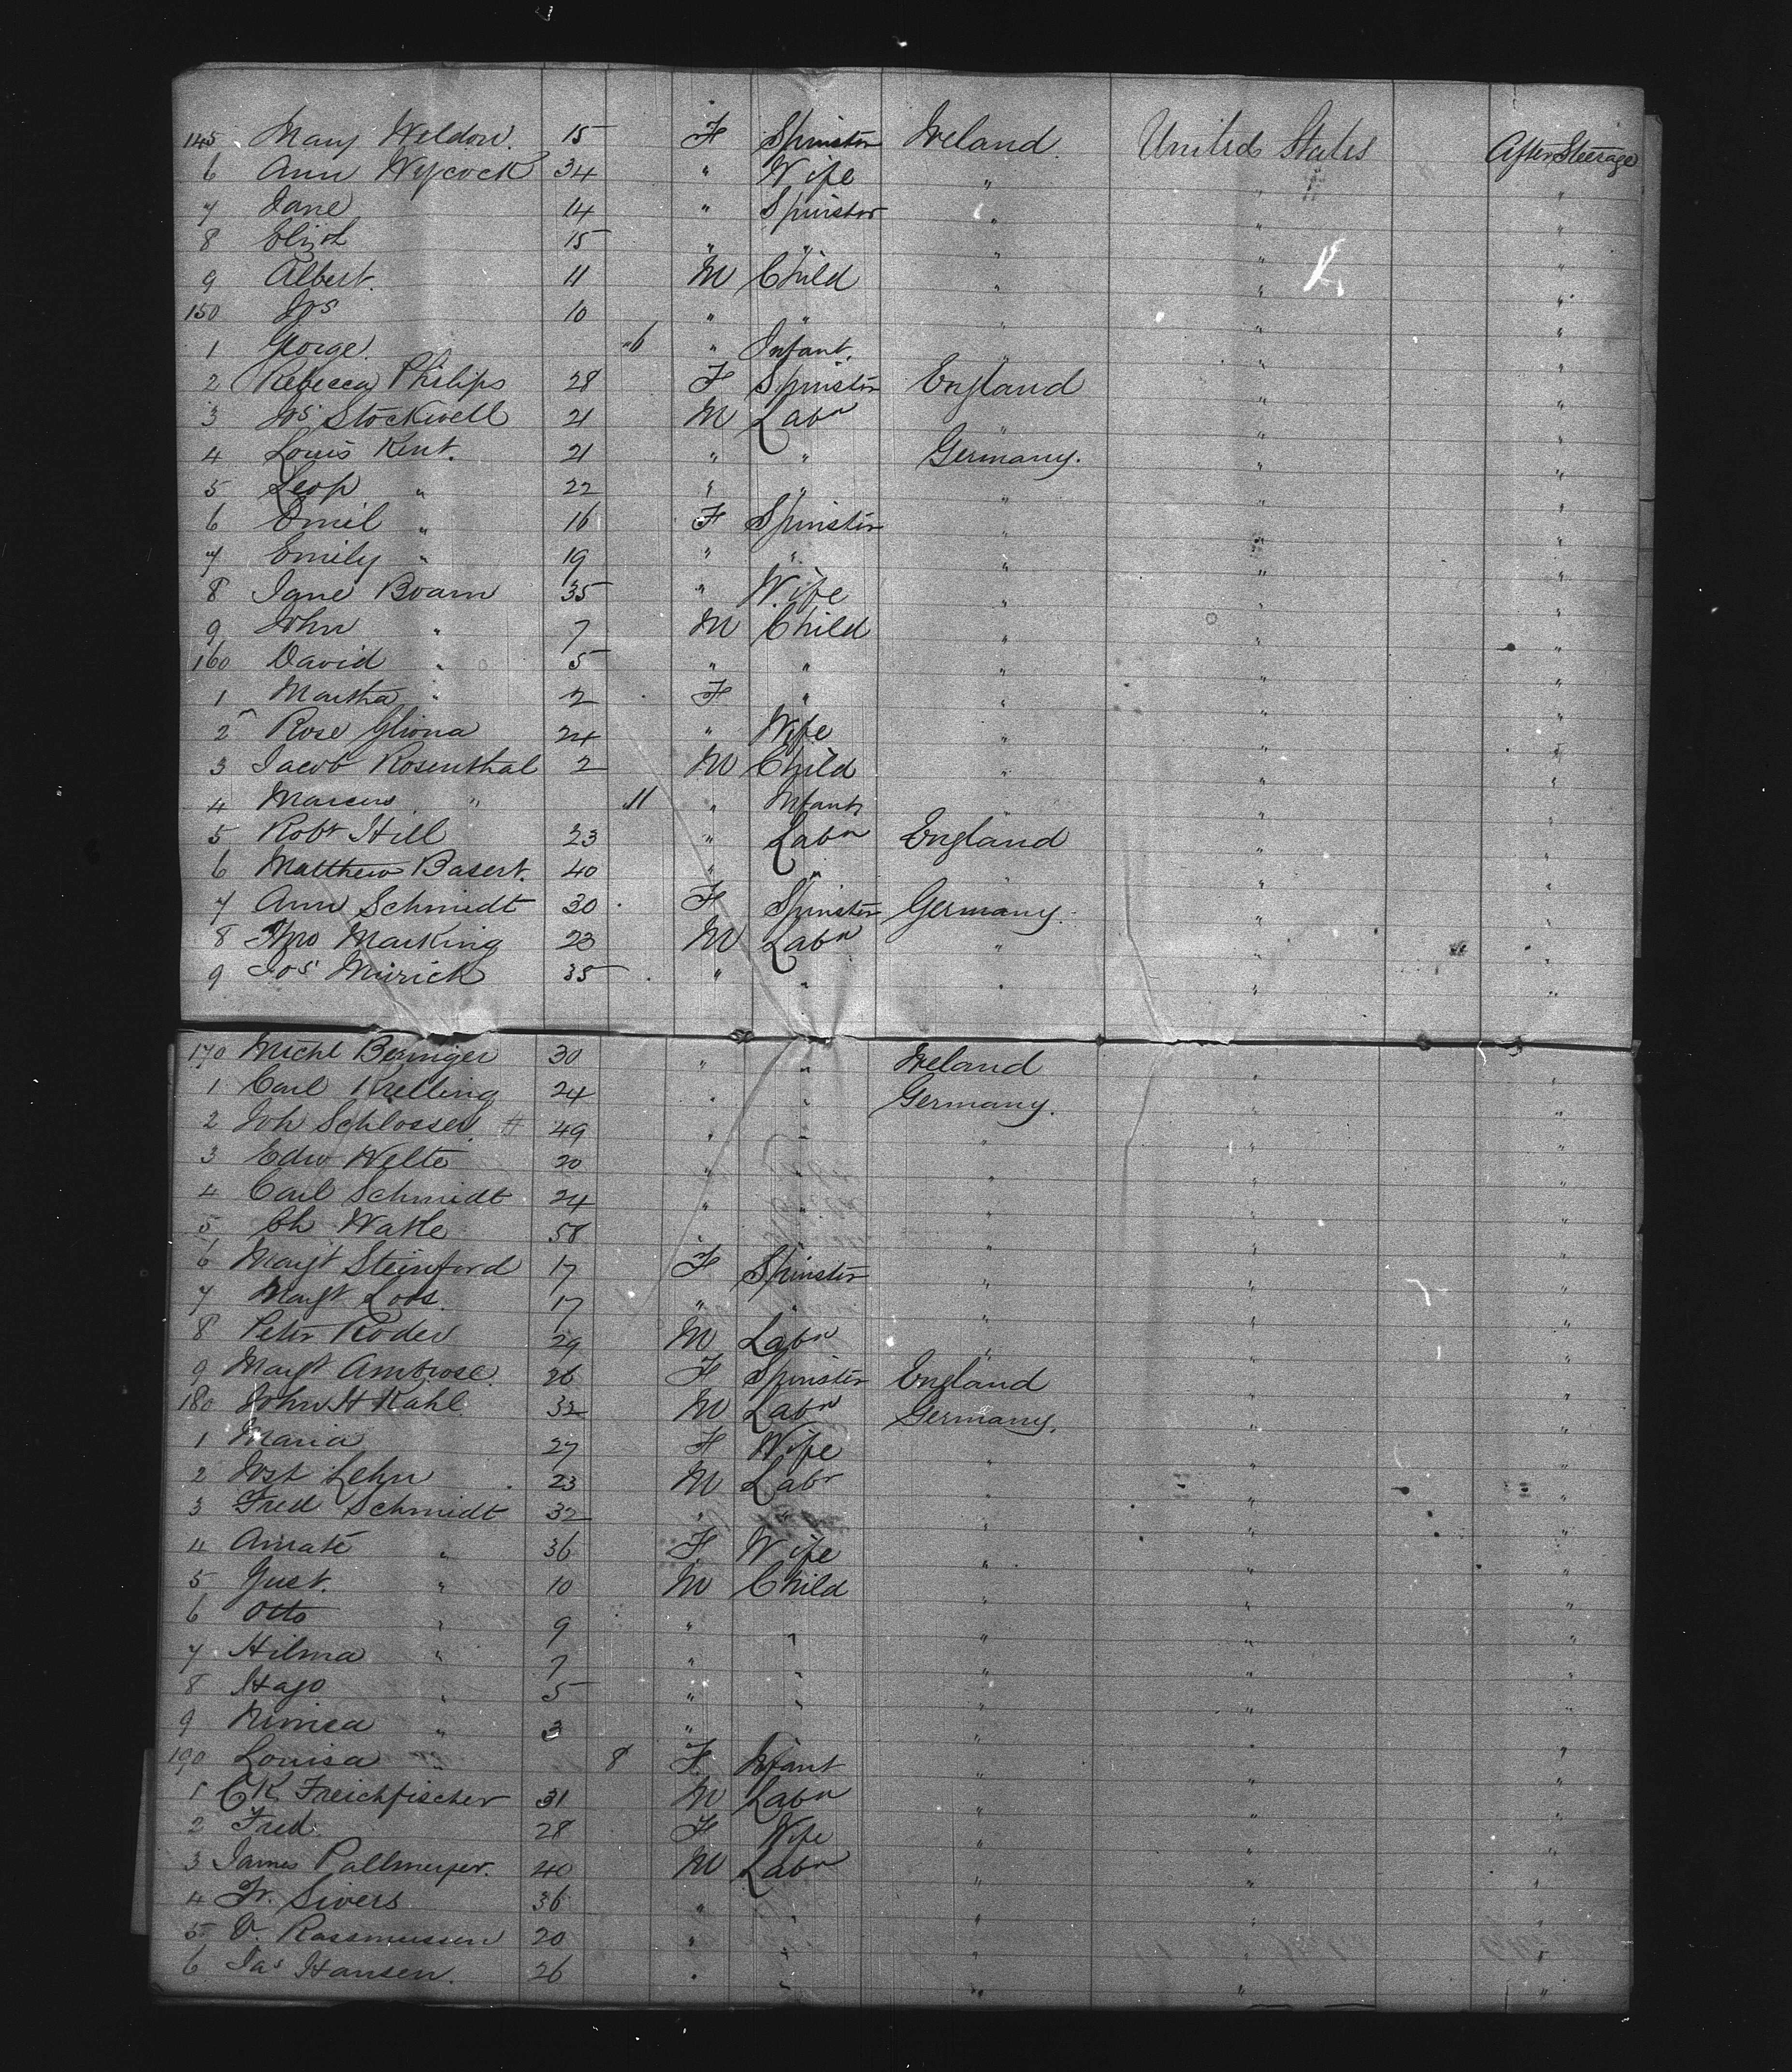 145 Mary Weldon. 15 F Spinster Ireland. United States After Steerage
6 Ann Wycock 34 " Wife " " "
7 Jane 14 " Spinster " " "
8 Elizth 15 " " " " "
9 Albert. 11 M Child " " "
150 Jos 10 " " " " "
1 George. 6 " Infant. " " "
2 Rebecca Philips 28 F Spinster England " "
3 Jos Stockwell 21 M Labr " " "
4 Louis Kent. 21 " " Germany. " "
5 Leop " 22 " " " " "
6 Emil " 16 F Spinster " " "
7 Emily " 19 " " " " "
8 Jane Boam 35 " Wife " " "
9 John " 7 M Child " " "
160 David " 5 " " " " "
1 Martha " 2 F " " " "
2 Rose 24 " Wife " " "
3 Jacob Rosenthal 2 M Child " " "
4 Marcus " 11 " Infant " " "
5 Robt Hill 23 " Labr England " "
6 Matthew Basert. 40 " " " " "
7 Ann Schmidt 30 F Spinster Germany. " "
8 Thos Marking 23 M Labr " " "
9 Jos Mirick 35 " " " " "
170 Michl Berniger 30 " " Ireland " "
1 Carl Krelling 24 " " Germany. " "
2 Joh Schlosser 49 " " " " "
3 Edw Welte 20 " " " " "
4 Carl Schmidt 24 " " " " "
5 Ch Watte 58 " " " " "
6 Margt Steinford 17 F Spinster " " "
7 Margt Loos. 17 " " " " "
8 Peter Roder 29 M Labr " " "
9 Margt Ambrose. 26 F Spinster England " "
180 John H Kahl. 32 M Labr Germany. " "
1 Maria 27 F Wife " " "
2 Jost Lehn 23 M Labr " " "
3 Fred Schmidt 32 " " " " "
4 Amate " 36 F Wife " " "
5 Gust. " 10 M Child " " "
6 Otto " 9 " " " " "
7 Hilma " 7 " " " " "
8 Hago " 5 " " " " "
9 Nimea " 3 " " " " "
190 Louisa " 8 F. Infant " " "
1 CK Freichfischer 31 M Labr " " "
2 Fred. 28 F Wife " " "
3 James Pallmeyer. 40 M Labr " " "
4 Fr. Sivers 36 " " " " "
5 V. Rasmussen 20 " " " " "
6 Jas Hansen. 26 " " " " "